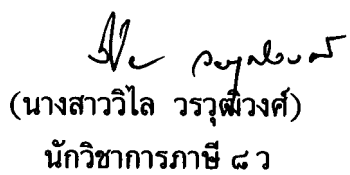 (นางสาววิไล วรวุฒิวงศ์)
นักวิชาการภาษี ๘ ว